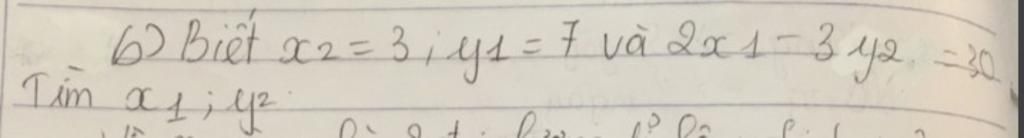 b) Biết x2 = 3 ; y1 = 7 và 2x1 - 3y2 = 30
Tìm x1 ; y2